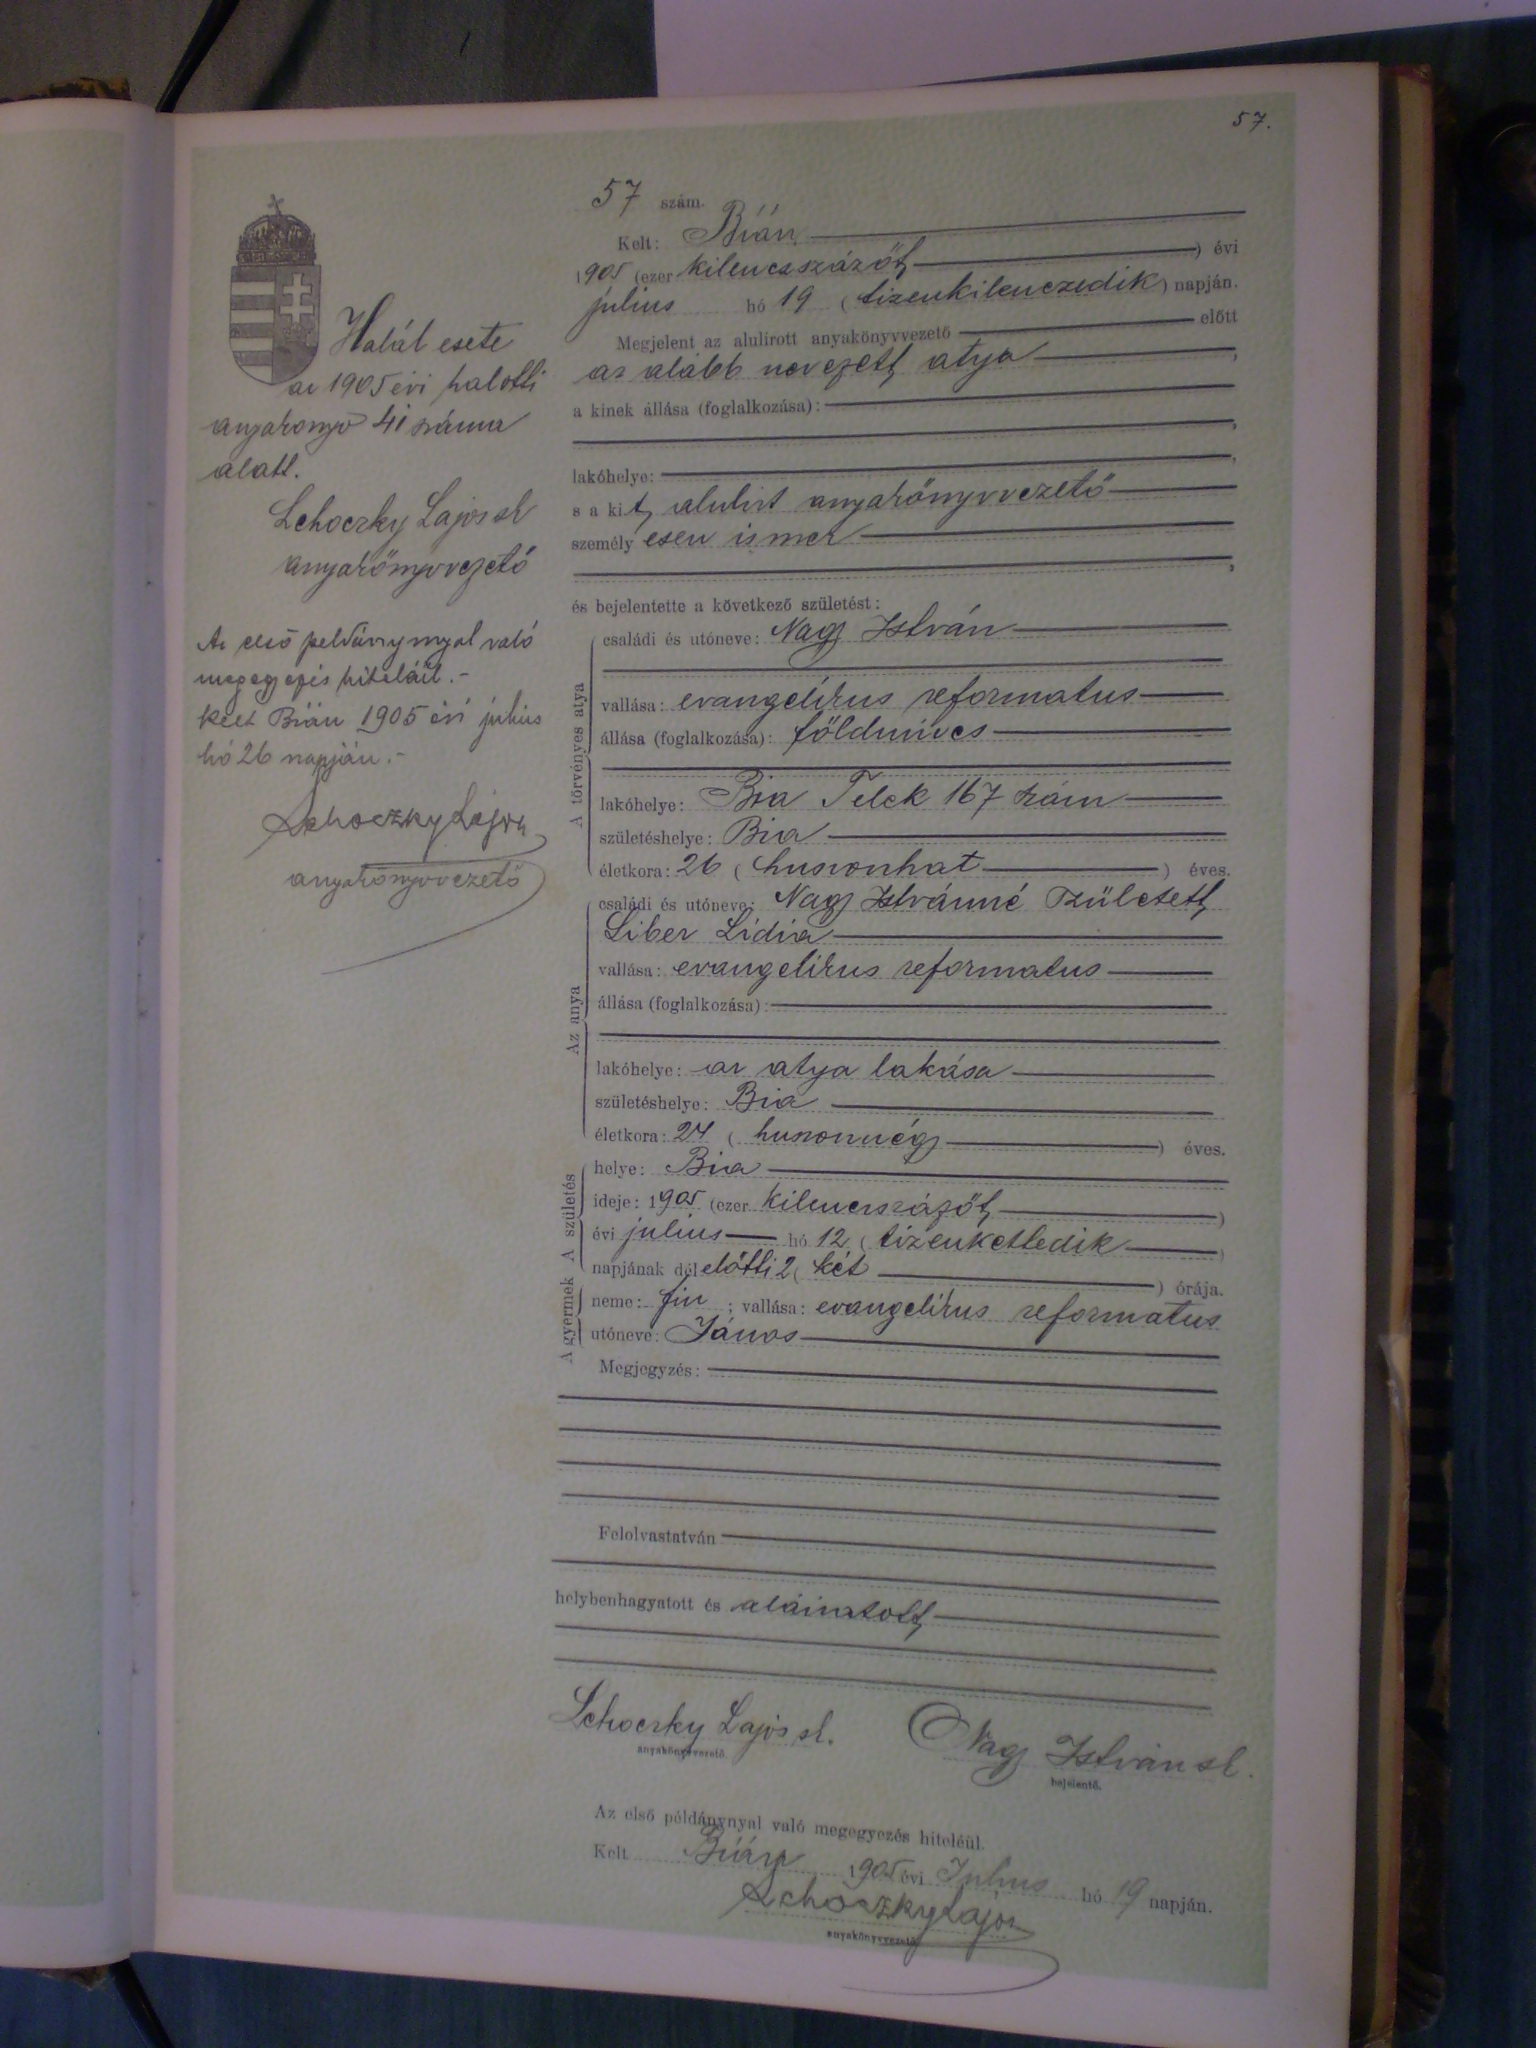 57.
57 szám.
Kelt: Bián
1905 (ezer kilencszázöt) évi
julius hó 19 (tizenkilenczedik) napján.
Megjelent az alulirott anyakönyvvezető előtt
az alább nevezett atya,
a kinek állása (foglalkozása):
,
lakóhelye: ,
s a kit alulirt anyakönyvvezető
személyesen ismer
,
és bejelentette a következő születést:
A törvényes atya
családi és utóneve: Nagy István
vallása: evangélikus reformatus
állása (foglalkozása): földmives
lakóhelye: Bia Telek 167 szám
születéshelye: Bia
életkora: 26 (huszonhat) éves.
Az anya
családi és utóneve: Nagy Istvánné született
Liber Lidia
vallása: evangelikus reformatus
állása (foglalkozása):
lakóhelye: az atya lakása
születéshelye: Bia
életkora: 24 (huszonnégy) éves.
A születés
helye: Bia
ideje: 1905 (ezer kilencszázöt)
évi julius hó 12 (tizenkettedik)
napjának délelőtti 2 (két) órája.
A gyermek
neme: fiu; vallása: evangelikus reformatus
utóneve: János
Megjegyzés:
Felolvastatván
helybenhagyatott és aláiratott
Lehoczky Lajos sk. Nagy István sk.
anyakönyvvezető. bejelentő.
Az első példánynyal való megegyezés hiteléül.
Kelt Bián 1905 évi Julius hó 19 napján.
Lehoczky Lajos
anyakönyvvezető
Halál esete
az 1905 évi halotti
anyakönyv 41 száma
alatt.
Lehoczky Lajos sk
anyakönyvvezető
Az első példánynyal való
megegyezés hiteléül.-
Kelt Bián 1905 évi julius
hó 26 napján.-
Lehoczky Lajos
anyakönyvvezető